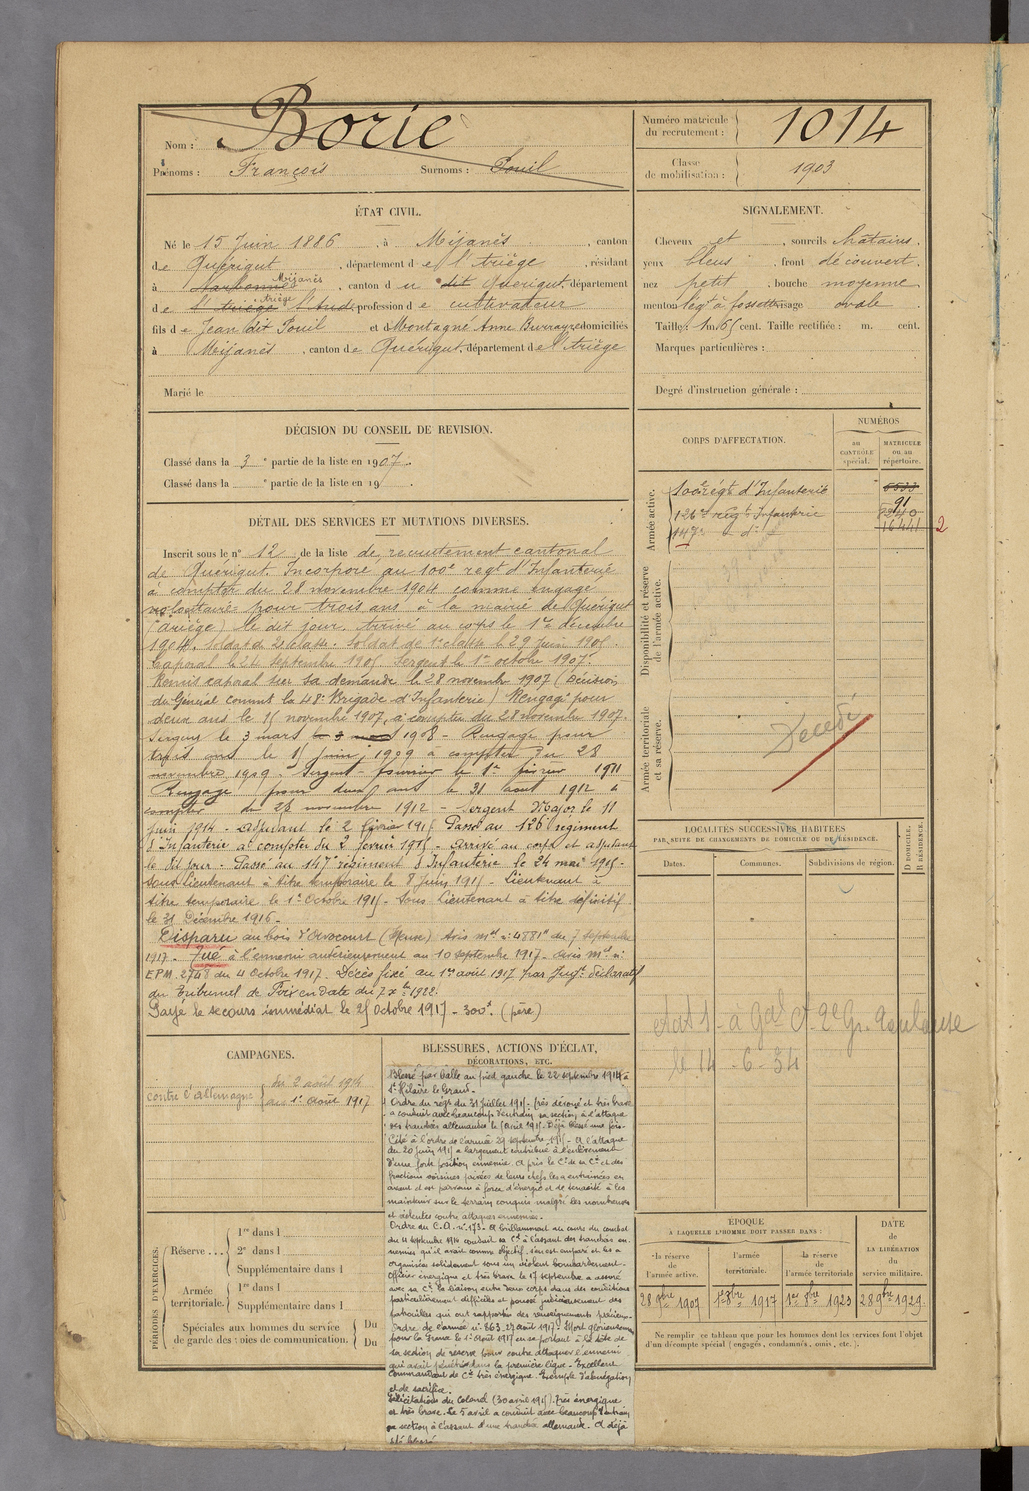 Nom : Borie
Prénoms : François Surnoms : Pouil
Numéro matricule du recrutement : 1014
Classe de mobilisation : 1903
ÉTAT CIVIL.
Né le 15 Juin 1886, à Mijanès, canton
de Quérigut, département de l'Ariège, résidant
Mijanès
à Narbonne, canton du dit Quérigut, département
Ariège
de l'Ariège l'Aude, profession de cultivateur
fils de Jean dit Pouil et de Montagné Anne domiciliés
à Mijanès, canton de Quérigut, département de l'Ariège
Marié le
SIGNALEMENT.
Cheveux et , sourcils châtains,
yeux bleus , front découvert,
nez petit , bouche moyenne,
menton lég. à fossette visage ovale
Taille : 1 m. 65 cent. Taille rectifiée : m. cent.
Marques particulières :
Degré d'instruction générale :
DÉCISION DU CONSEIL DE REVISION.
Classé dans la 3 e partie de la liste en 1907.
Classé dans la e partie de la liste en 19 .
CORPS D'AFFECTATION.
NUMÉROS
au CONTRÔLE spécial.
MATRICULE ou au répertoire.
Armée active.
100e régt d'Infanterie
91
126e Régt Infanterie 8240
147e - d° - 16441 2
Disponibilité et réserve de l'armée active.
Armée territoriale et sa réserve.
Décédé
DÉTAIL DES SERVICES ET MUTATIONS DIVERSES.
Inscrit sous le n° 12 de la liste de recrutement cantonal
de Quérigut. Incorporé au 100e regt d'Infanterie
à compter du 28 novembre 1904 comme engagé
volontaire pour trois ans à la mairie de Quérigut
(Ariège) le dit jour. Arrivé au corps le 1er décembre
1904, soldat de 2e classe. Soldat de 1e classe le 29 Juin 1905.
Caporal le 24 septembre 1905 Sergent le 1er octobre 1907.
Remis caporal sur sa demande le 28 novembre 1907 (Décision
du Général commt la 48e Brigade d'Infanterie) Rengagé pour
deux ans le 15 novembre 1907, à compter du 28 novembre 1907.
Sergent le 3 mars 1908 - Rengagé pour
trois ans le 15 juin 1909 à compter du 28
novembre 1909 - Sergent-fourrier le 1er février 1911
Rengagé pour deux ans le 31 aout 1912 à
compter du 28 novembre 1912 - Sergent Major le 11
juin 1914 - adjudant le 2 février 1915 Passé au 126e regiment
d'Infanterie à compter du 2 février 1915 - arrivé au corps et adjudant
le dit jour - Passé au 147e régiment d'Infanterie le 24 mai 1915 -
Sous Lieutenant à titre temporaire le 8 juin 1915 - Lieutenant à
titre temporaire le 1er Octobre 1915 - Sous Lieutenant à titre définitif
le 31 Décembre 1916 -
Disparu au bois d'Avocourt (Meuse) Avis mel n° 4881 du 7 septembre
1917 - Tué à l'ennemi antérieurement au 10 septembre 1917 - avis Mel n°
EPM. 2748 du 4 Octobre 1917 - Décès fixé au 1er août 1917 par Jugt déclaratif
du Tribunal de Foix en date du 7 xbre 1922.
Payé le secours immédiat le 25 Octobre 1917 - 300f (père)
LOCALITÉS SUCCESSIVES HABITÉES
PAR SUITE DE CHANGEMENTS DE DOMICILE OU DE RÉSIDENCE.
Dates. Communes. Subdivisions de région. D DOMICILE. R RÉSIDENCE.
le 14-6-34
CAMPAGNES.
contre l'allemagne du 2 août 1914
au 1er Août 1917
BLESSURES, ACTIONS D'ÉCLAT,
DÉCORATIONS, ETC.
Blessé par balle au pied gauche le 22 septembre 1914 à
St Hilaire le Grand -
Ordre du régt du 31 juillet 1915 - très dévoué et très brave
a conduit avec beaucoup d'entrain sa section à l'attaque
des tranchées allemandes le 5 avril 1915 - Déjà blessé une fois -
Cité à l'ordre de l'armée 29 septembre 1915 - A l'attaque
du 20 juin 1915 a largement contribué à l'enlèvement
d'une forte position ennemie. A pris le Ct de sa Cie et des
fractions voisines privées de leurs chefs les a entrainées en
avant et est parvenu à force d'énergie et de tenacité à les
maintenir sur le terrain conquis malgré les nombreuses
et violentes contre attaques ennemies -
Ordre du C.A. n° 173 - A brillamment au cours du combat
du 4 septembre 1916 conduit sa Cie à l'assaut des tranchées en-
nemies qu'il avait comme objectif, s'en est emparé et les a
organisées solidement sous un violent bombardement -
Officier énergique et très brave le 17 septembre a assuré
avec sa Cie la liaison entre deux corps dans des conditions
particulièrement difficiles et poussé judicieusement des
patrouilles qui ont rapporté des renseignements précieux -
Ordre de l'armée n° 863, 27 août 1917 - Mort glorieusement
pour la France le 1er Août 1917 en se portant à la tête de
sa section de réserve pour contre attaquer l'ennemi
qui avait pénétré dans la première ligne - Excellent
commandant de Cie très énergique - Exemple d'abnégation
et de sacrifice.
Félicitations du Colonel (30 avril 1915). Très énergique
et très brave. Le 5 avril a conduit avec beaucoup d'entrain
sa section à l'assaut d'une tranchée allemande. A déjà
été blessé
PÉRIODES D'EXERCICES.
Réserve...
1re dans l
2e dans l
Supplémentaire dans l
Armée territoriale.
1re dans l
Supplémentaire dans l
Spéciales aux hommes du service
de garde des voies de communication.
Du
Du
ÉPOQUE
À LAQUELLE L'HOMME DOIT PASSER DANS :
la réserve de l'armée active.
l'armée territoriale.
la réserve de l'armée territoriale
DATE
DE
LA LIBÉRATION
du
service militaire.
28 9bre 1907 1er 8bre 1917 1er 8bre 1923 28 9bre 1929.
Ne remplir ce tableau que pour les hommes dont les services font l'objet
d'un décompte spécial (engagés, condamnés, omis, etc.).